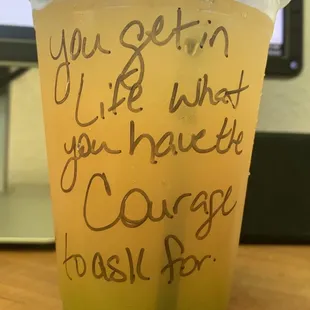 you get in
Life what
you have the
Courage
to ask for.